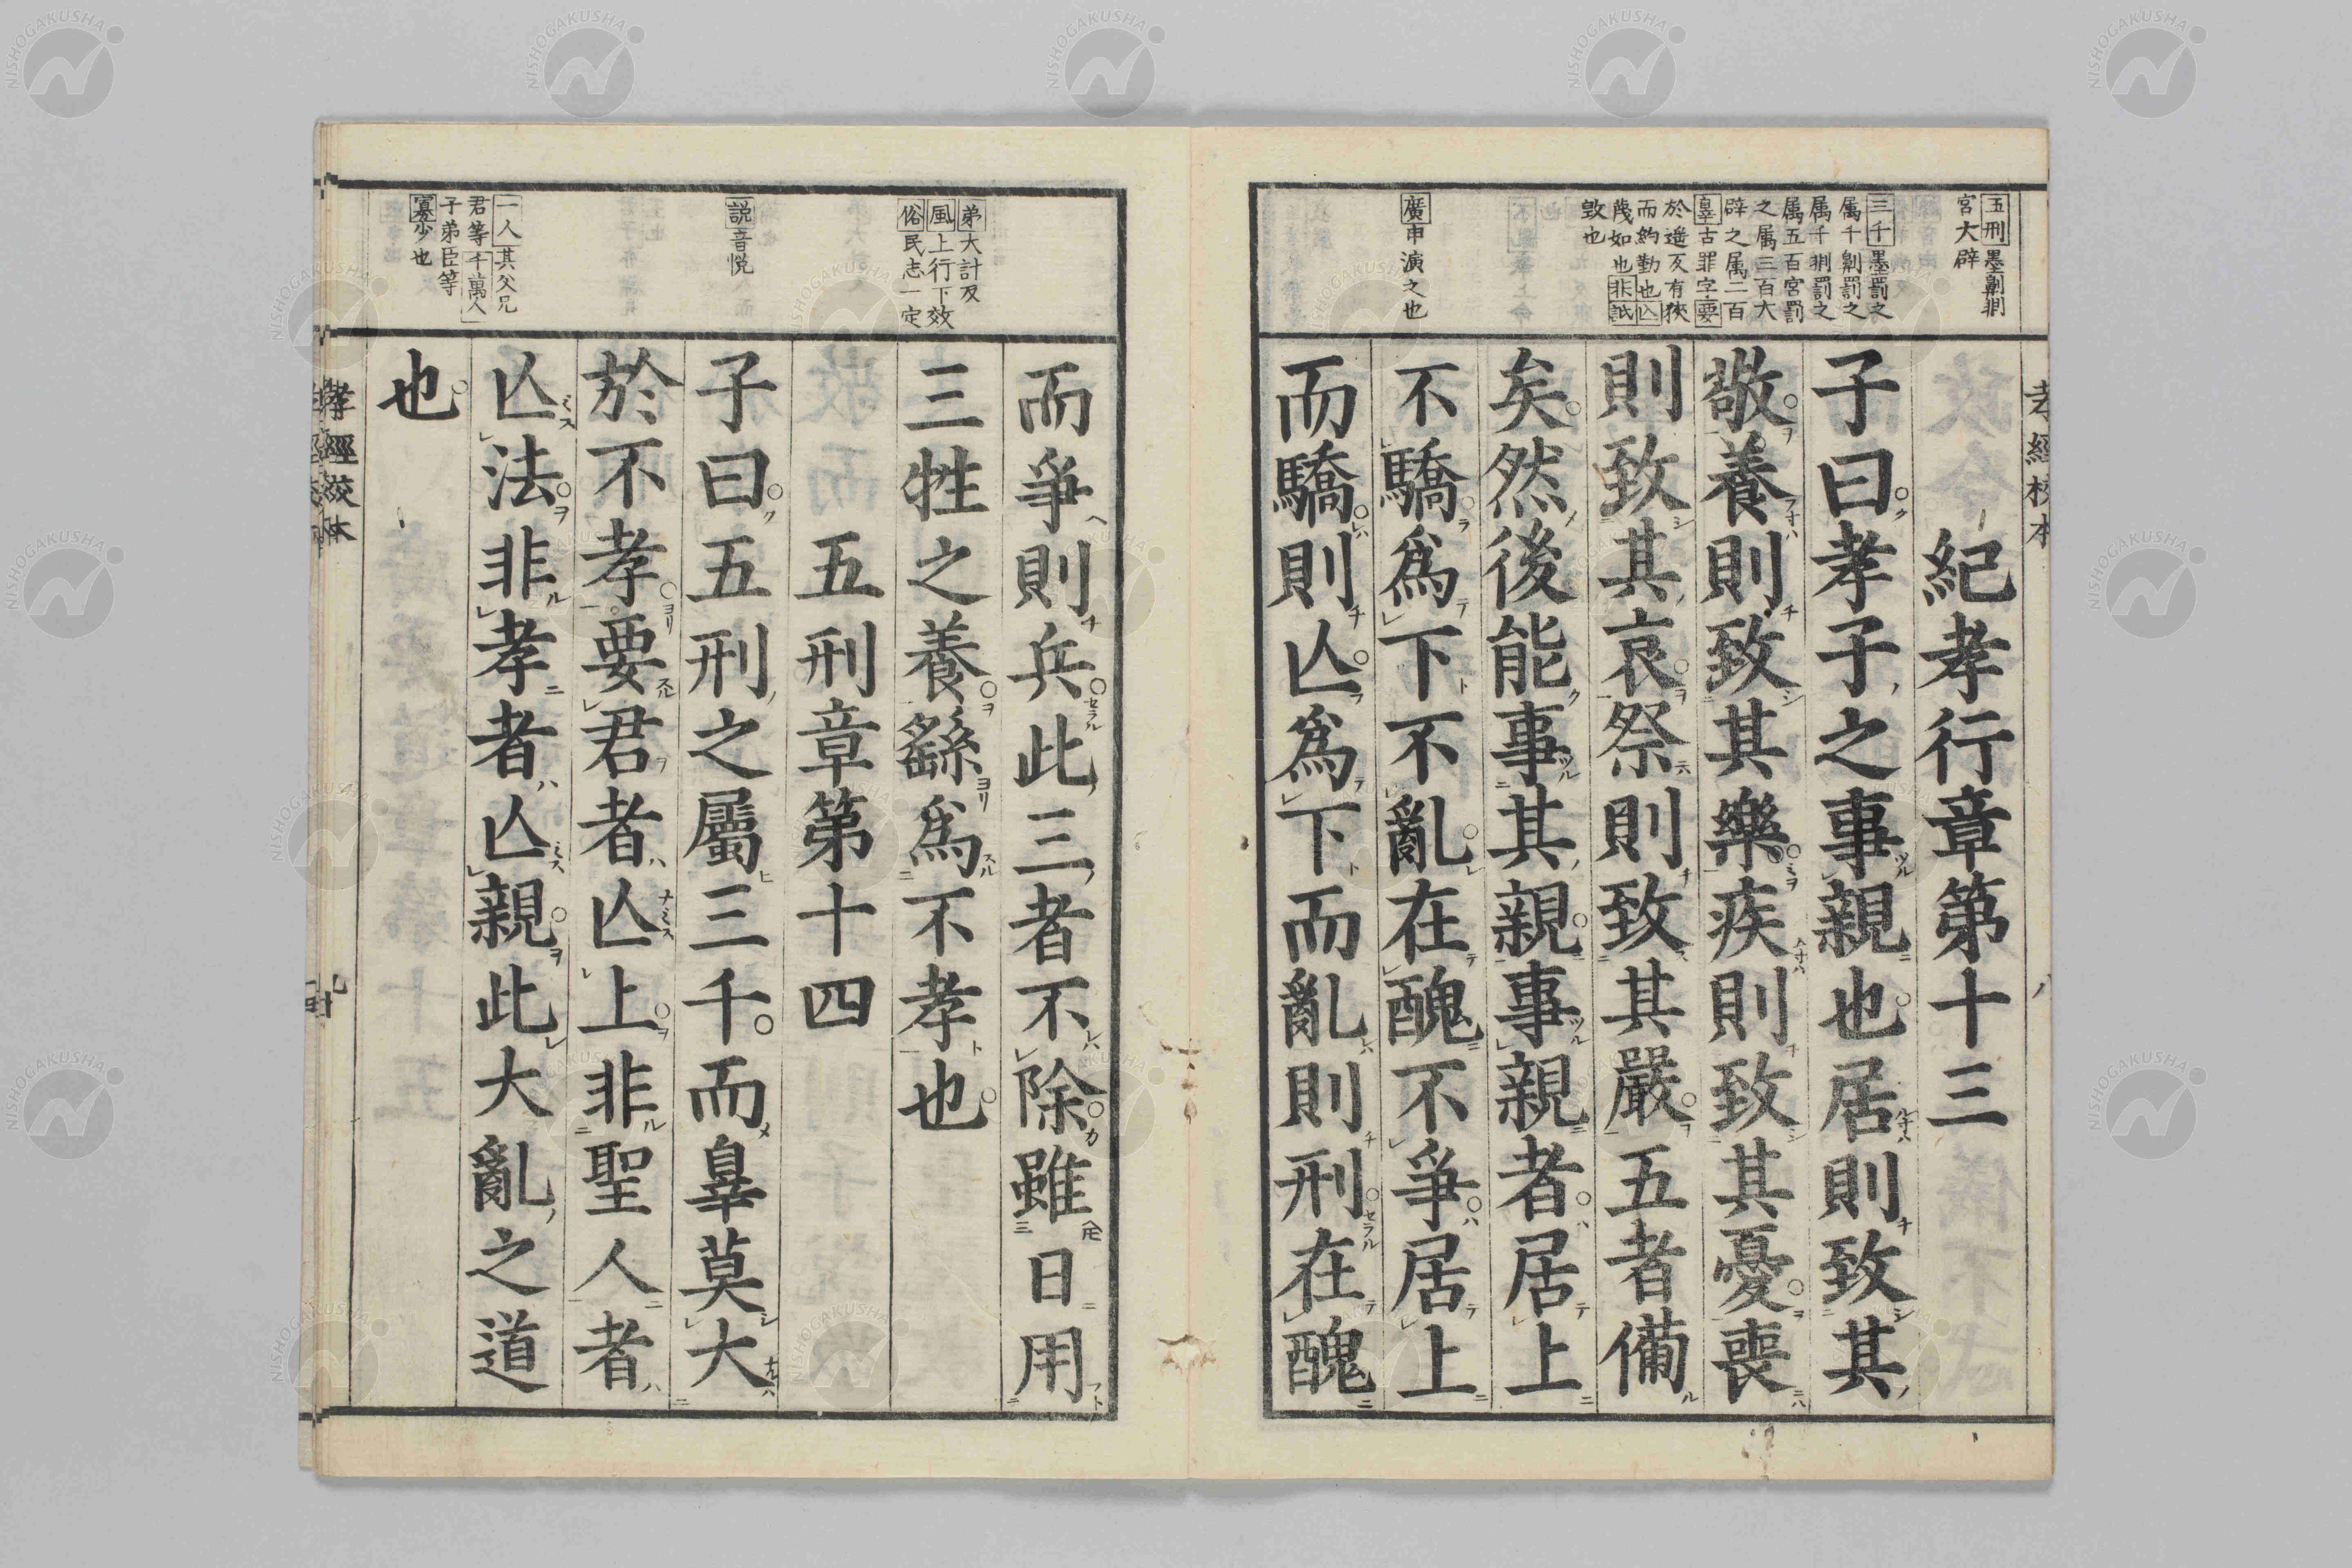 五刑墨劓剕
宮大辟
三千墨罰之
属千劓罰之
属千剕罰之
属五百宮罰
之属三百大
辟之属二百
辠古罪字要
於遮反有挾
而約勒也亾
蔑如也非詆
毀也
廣申演之也
孝經校本
紀孝行章第十三
子曰孝子之事親也居則致其
敬養則致其樂疾則致其憂喪
則致其哀祭則致其嚴五者備
矣然後能事其親事親者居上
不驕爲下不亂在醜不爭居上
而驕則亾爲下而亂則刑在醜
弟大計反
風上行下效
俗民志一定
説音悦
一人其父兄
君等千萬人
子弟臣等
寡少也
而爭則兵此三者不除雖日用
三牲之養繇爲不孝也
五刑章第十四
子曰五刑之屬三千而辠莫大
於不孝要君者亾上非聖人者
亾法非孝者亾親此大亂之道
也
孝經校本
九
NISHOGAKUSHA